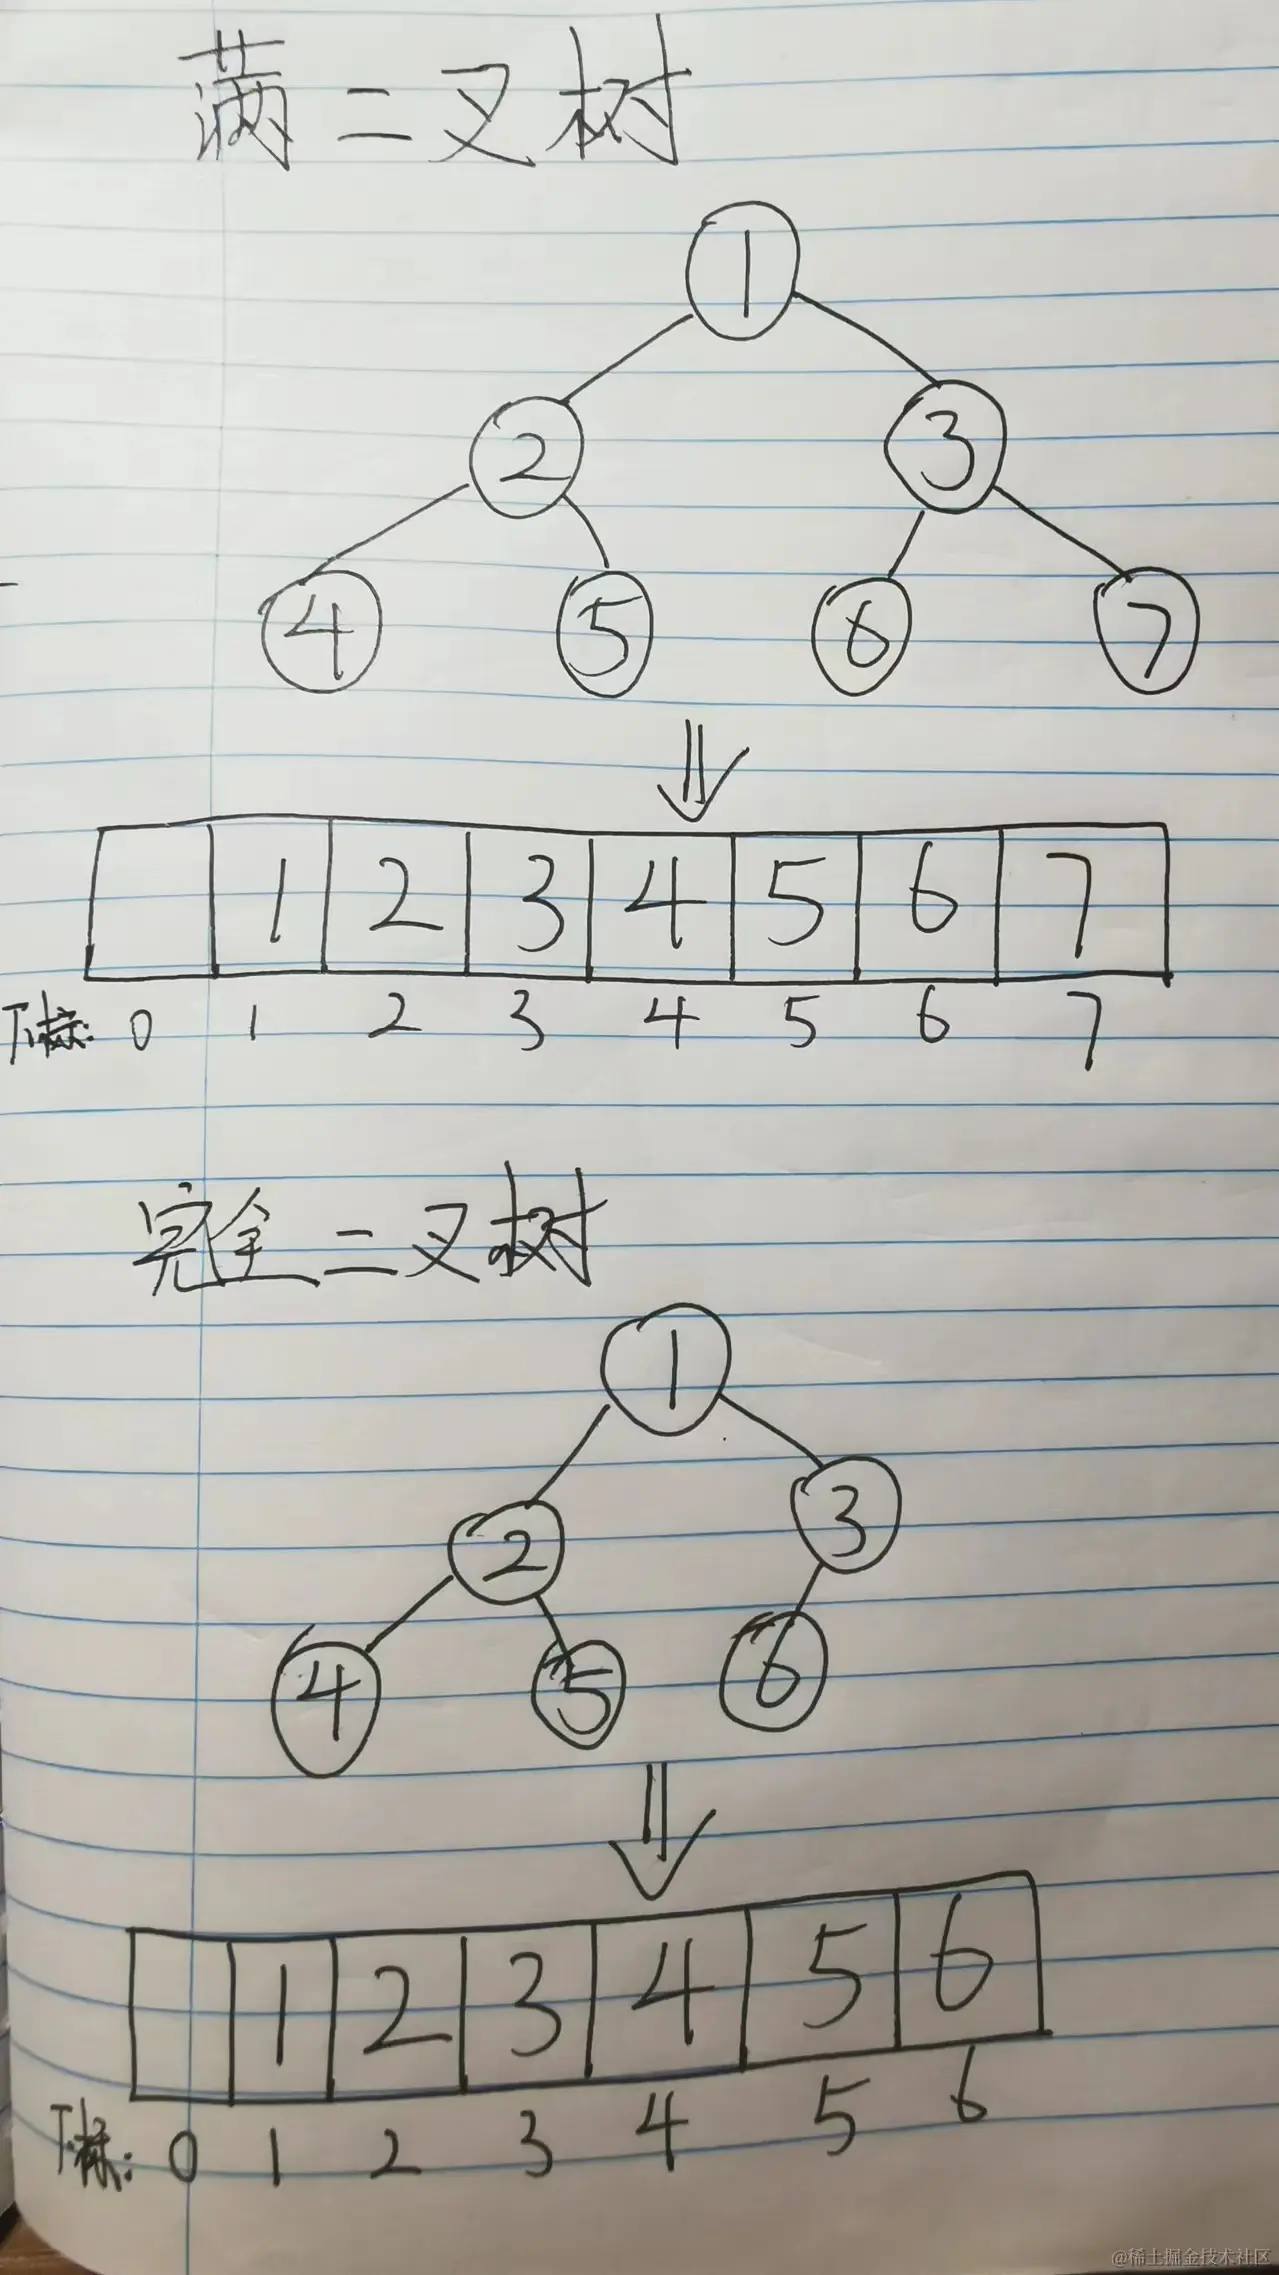 满二叉树
1
2 3
4 5 6 7
1 2 3 4 5 6 7
下标: 0 1 2 3 4 5 6 7
完全二叉树
1
2 3
4 5 6
1 2 3 4 5 6
下标: 0 1 2 3 4 5 6
@稀土掘金技术社区